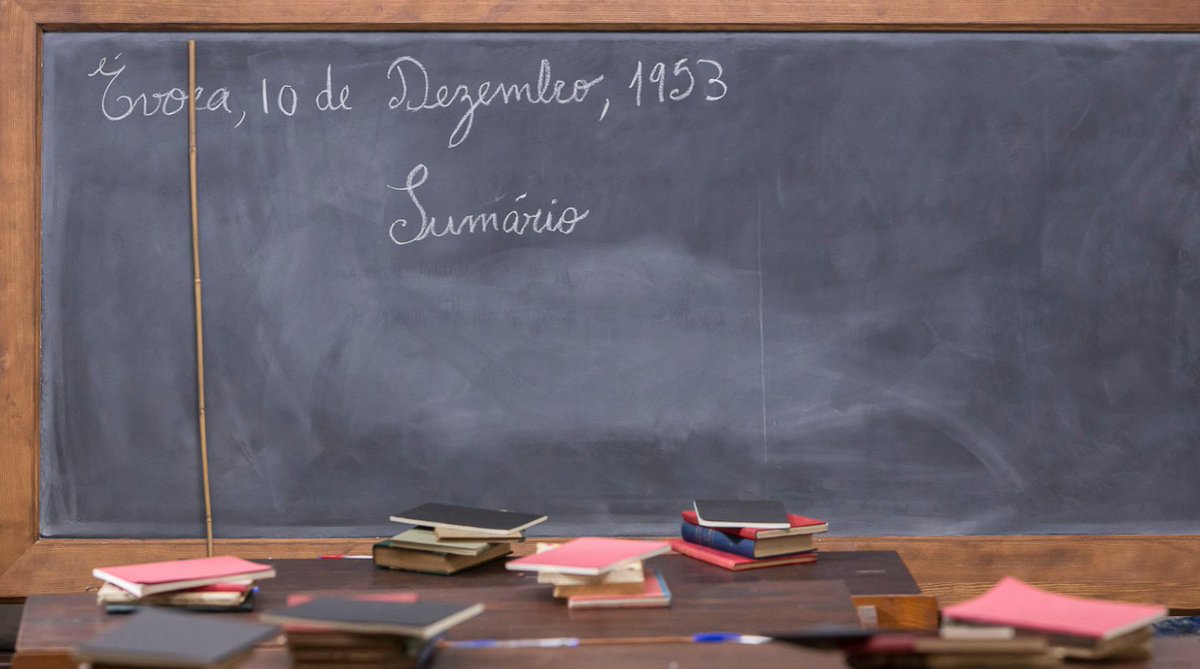 Évora, 10 de Dezembro, 1953
Sumário